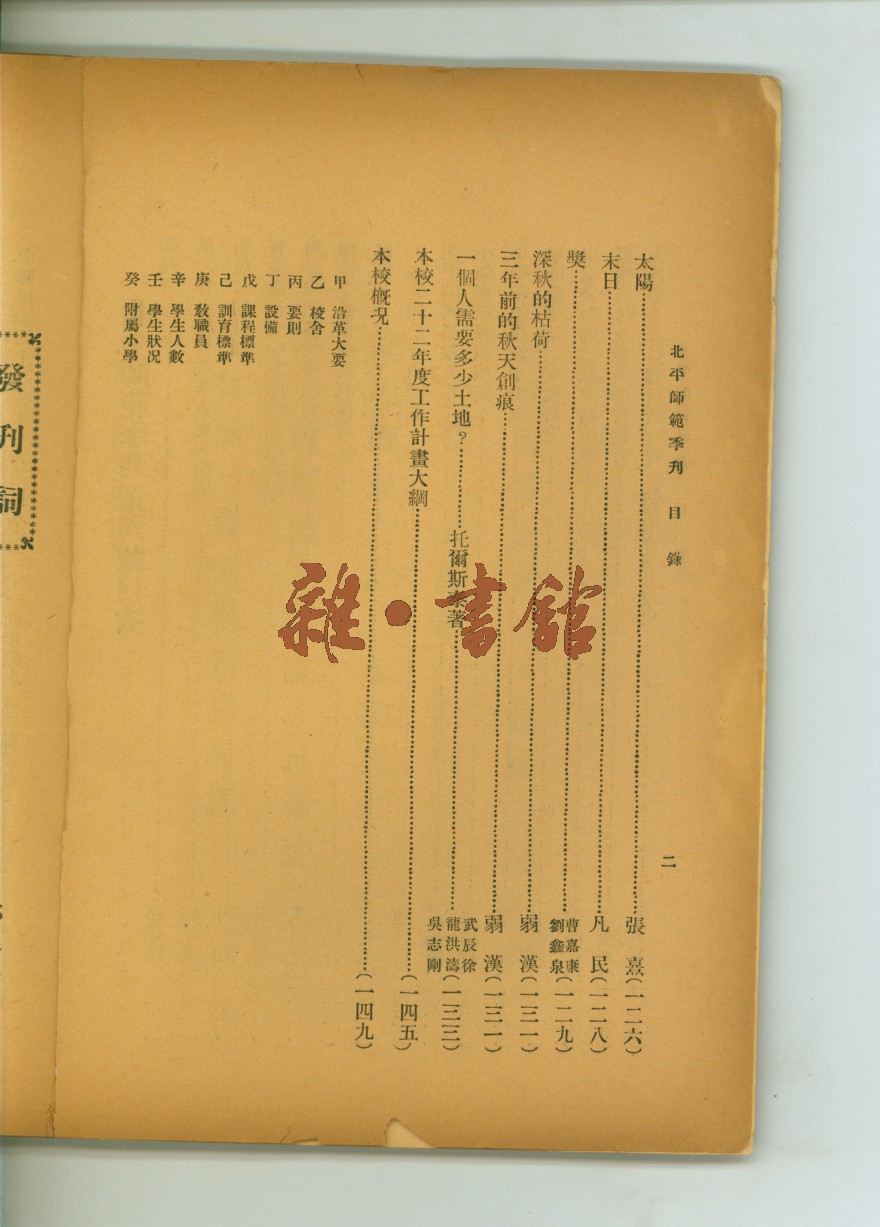 北平師範季刊 目錄 二
太陽……張 熹(一二六)
末日……凡 民(一二八)
獎……曹嘉康 劉鑫泉(一二九)
深秋的枯荷……弱 漢(一三一)
三年前的秋天創痕……弱 漢(一三一)
一個人需要多少土地?……托爾斯泰著……武辰徐 龍洪濤 吳志剛(一三三)
本校二十二年度工作計畫大綱……(一四五)
本校概况……(一四九)
甲 沿革大要
乙 校舍
丙 要則
丁 設備
戊 課程標準
己 訓育標準
庚 教職員
辛 學生人數
壬 學生狀况
癸 附屬小學
發刊詞
雜·書館